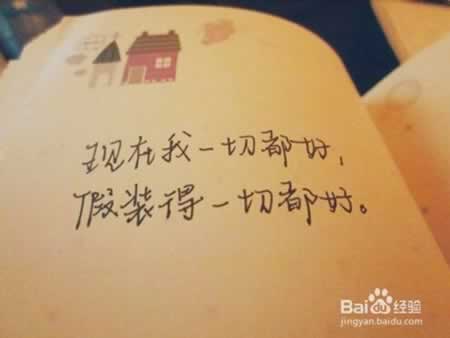 现在我一切都好，
假装得一切都好。
Bai du 经验
jingyan.baidu.com